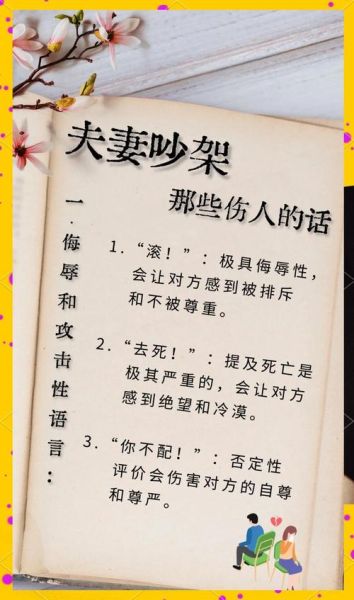 夫妻吵架
那些伤人的话
一.侮辱和攻击性语言：
1. “滚！”：极具侮辱性，
会让对方感到被排斥
和不被尊重。
2. “去死！”：提及死亡是
极其严重的，会让对方
感到绝望和冷漠。
3. “你不配！”：否定性
评价会伤害对方的自尊
和尊严。